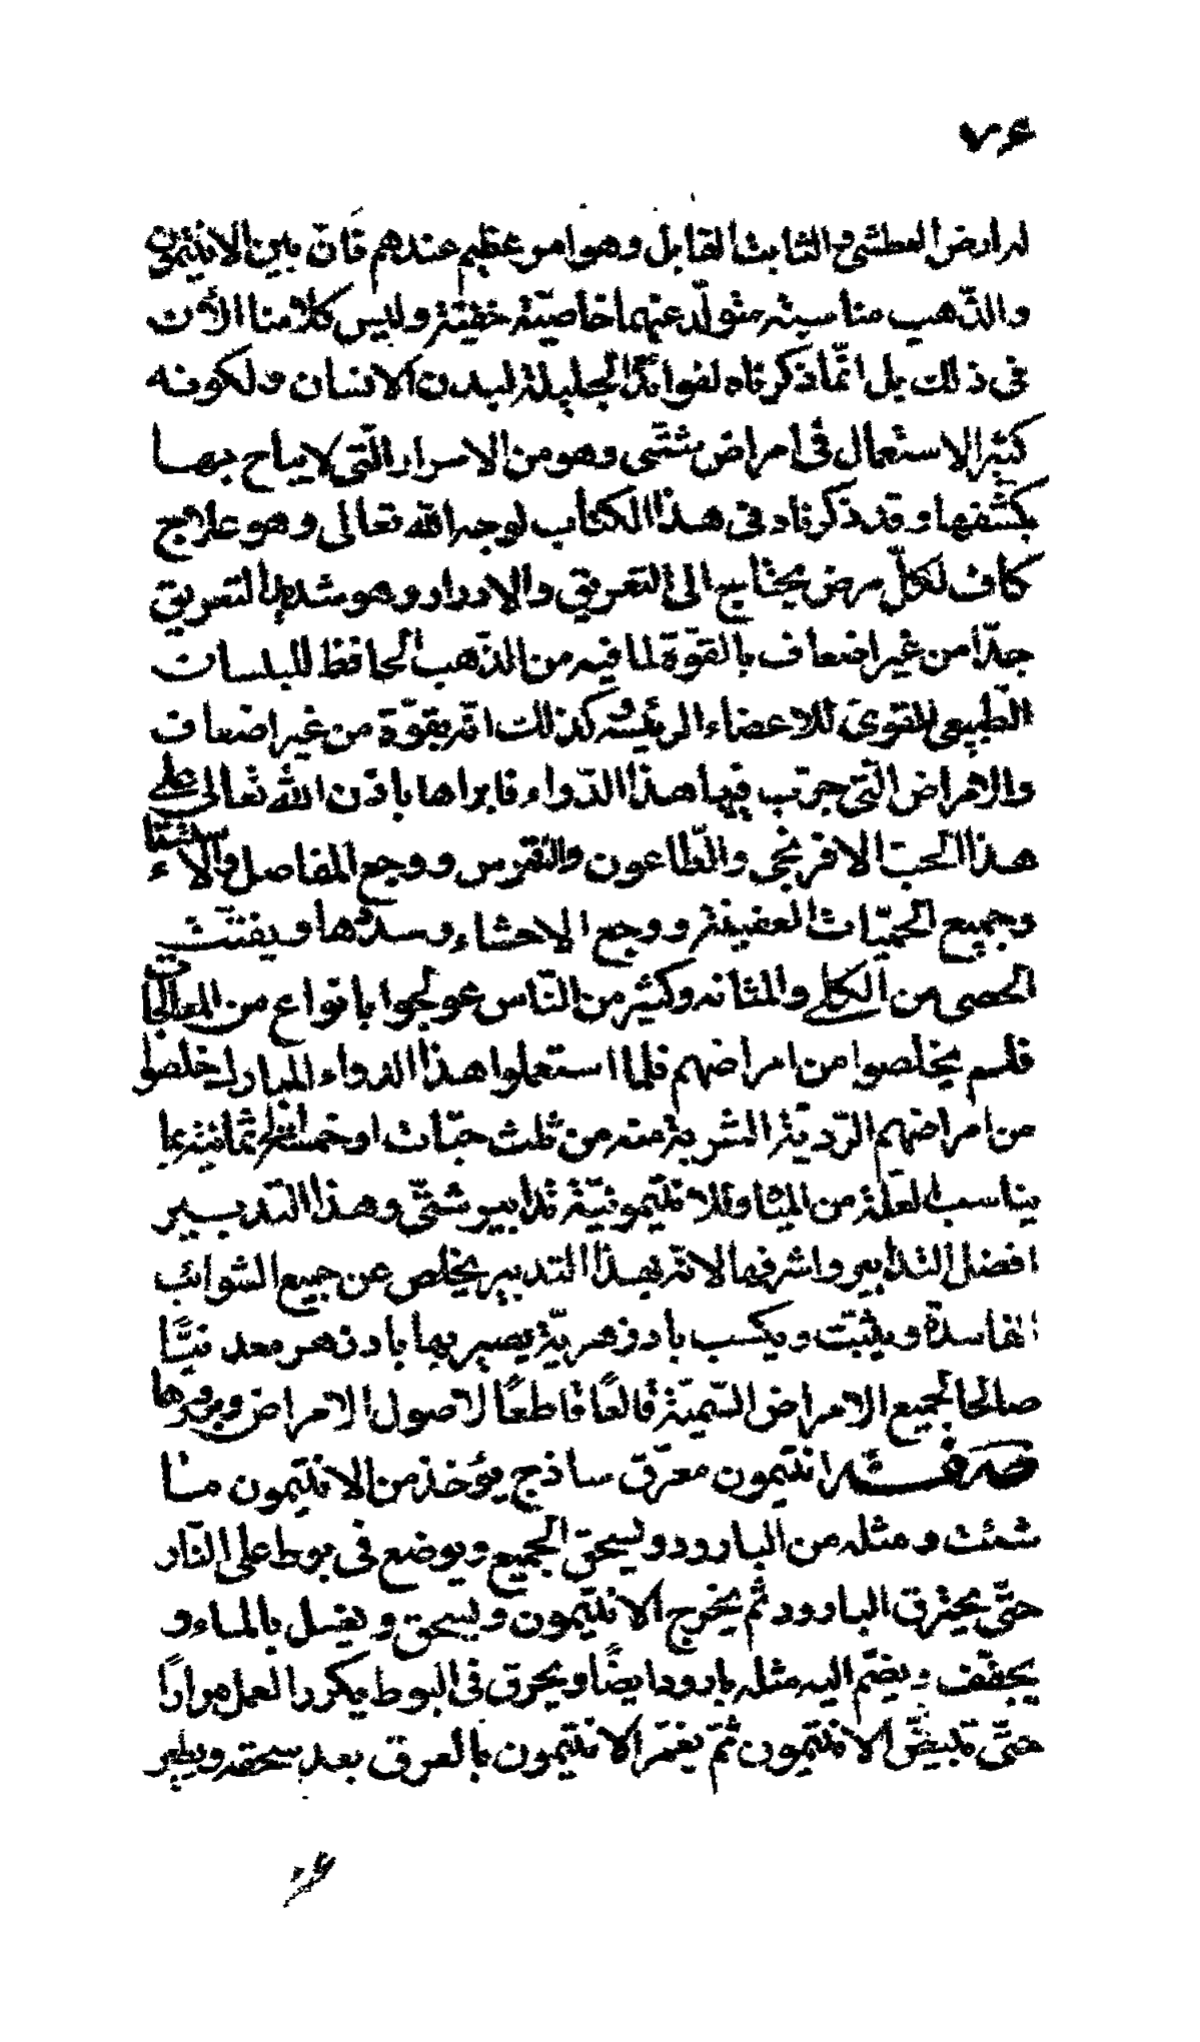 ٧٤
لدا ارض العطشى والثابت القابل وهو امر عظيم عندهم فَانّ بين الانتيمون
والذّهب مناسبة متولّد عنهما خاصيّة خفيّة وليس كلامنا الأن
فى ذلك بل انّما ذكرناه لفوائده الجليلة لبدن الانسان ولكونه
كثير الاستعمال فى امراض شتّى وهو من الاسرار الّتى لا يباح بها
بكشفها وقد ذكرناه فى هذا الكتاب لوجه الله تعالى وهو علاج
كاف لكلّ مرض يحتاج الى التعريق والادرار وهو شديد التعريق
جدّا من غير اضعاف بالقوّة لما فيه من الذّهب الحافظ للبلسان
الطّبيعى المقوى للاعضاء الرئيسة وكذلك انّه يقوّة من غير اضعاف
والامراض الّتى جرّب فيها هذا الدّواء فابراها باذن الله تعالى على
هذا الحبّ الافرنجى والطّاعون والنقرس ووجع المفاصل والاستسقاء
وجميع الحميّات العفينة ووجع الاحشاء وسددها ويفتّت
الحصى من الكلى والمثانه وكثير من النّاس عولجوا بانواع من المعالجات
فلم يخلصوا من امراضهم فلما استعملوا هذا الدواء المبارك خلصوا
من امراضهم الرّديّة الشربة منه من ثلث حبّات او خمسة الى ثمانية بما
يناسب العلّة من المياه وللانتيمونيّة تدابير شتّى وهذا التدبير
افضل التدابير واشرفها لانّه بهذا التدبير يخلص عن جميع الشوائب
الفاسدة ويثبّت ويكسب بادزهريّة يصير بها بادزهر معدنيّا
صالحا لجميع الامراض السّميّة قالعًا قاطعًا لاصول الامراض وبزورها
صفة انتيمون معرّق ساذج يؤخذ من الانتيمون ما
شئت ومثله من البارود ويسحق الجميع ويوضع فى بوط على النّار
حتّى يحترق البارود ثم يخرج الانتيمون ويسحق ويغسل بالماء و
يجفّف ويضمّ اليه مثله بارودا ايضًا ويحرق فى البوط يكرر العمل مرارًا
حتّى تبيضّ الانتيمون ثمّ يغمر الانتيمون بالعرق بعد سحقه ويطير